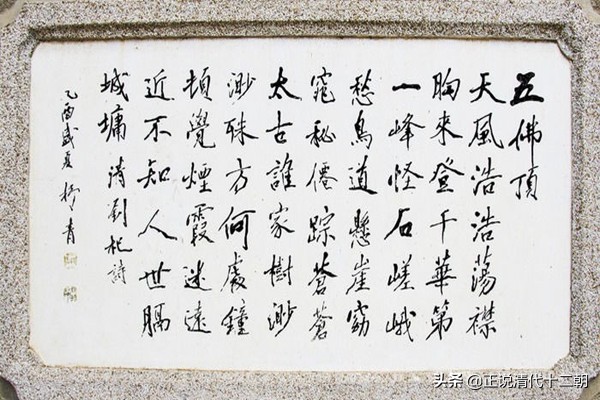 五佛頂
天風浩浩蕩襟
胸來登千華第
一峰怪石嵯峨
愁鳥道懸崖窈
窕秘僊踪蒼蒼
太古誰家樹渺
渺殊方何處鐘
頓覺煙霞迷遠
近不知人世隔
城墉 清劉杞詩
乙酉盛夏 青
头条 @正说清代十二朝